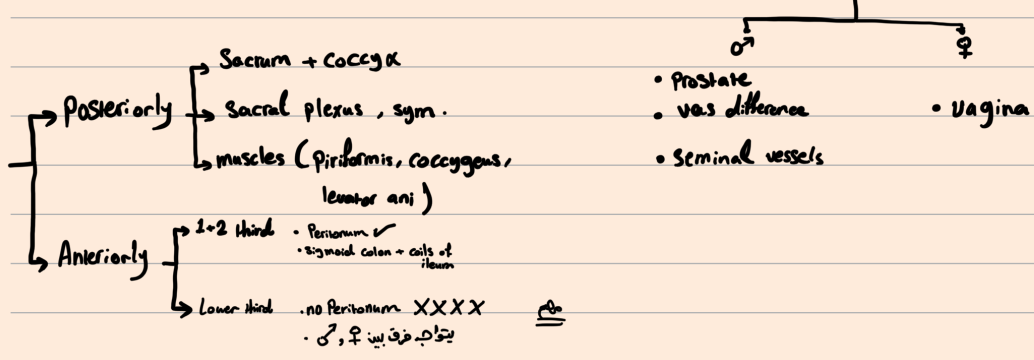 Sacrum + Coccyx
Posteriorly
Sacral plexus , sym.
muscles (Piriformis, coccygeus,
levator ani)
Anteriorly
1+2 third • Peritonum ✓
• sigmoid colon + coils of
ileum
Lower third • no Peritonum XXXX
• يتواجد فرق بين ♀, ♂
♂ ♀
• Prostate
• vas difference
• vagina
• Seminal vessels